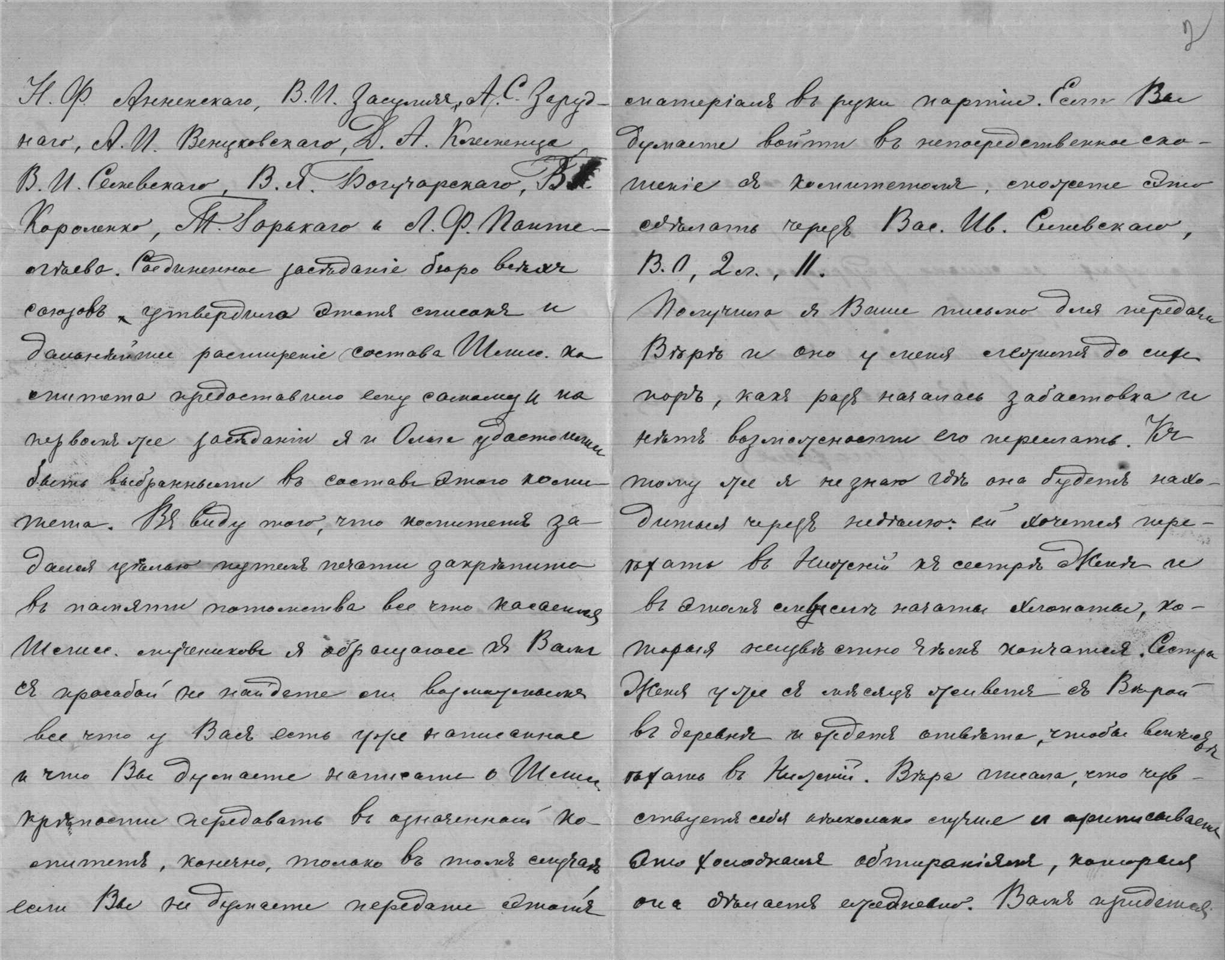 2
Н. Ф. Анненскаго, В. И. Засуличъ, А. С. Заруд-
наго, А. И. Венцковскаго, Д. А. Клеменца
В. И. Семевскаго, В. Я. Богучарскаго, В. Г.
Короленко, М. Горькаго и Л. Ф. Панте-
лѣева. Соединенное засѣданіе бюро всѣхъ
союзовъ утвердило этотъ списокъ и
дальнѣйшее расширеніе состава Шлисс. ко
митета предоставило ему самому и на
первомъ же засѣданіи я и Ольга удостоились
быть выбранными въ составъ этого коми
тета. Въ виду того, что комитетъ за-
дался цѣлью путемъ печати закрѣпить
въ памяти потомства все что касается
Шлисс. мучениковъ я обращаюсь къ Вамъ
съ просьбой не найдете ли возможнымъ
все что у Васъ есть уже написанное
и что Вы думаете написать о Шлисс.
крѣпости передавать въ означенный ко-
митетъ, конечно, только въ томъ случаѣ
если Вы не думаете передать этотъ
матеріалъ въ руки партіи. Если Вы
думаете войти въ непосредственное сно-
шеніе съ комитетомъ, можете это
сдѣлать черезъ Вас. Ив. Семевскаго,
В. О, 2 л., 11.
Получила я Ваше письмо для передачи
Вѣрѣ и оно у меня лежитъ до сихъ
поръ, какъ разъ началась забастовка и
нѣтъ возможности его переслать. Къ
тому же я не знаю гдѣ она будетъ нахо-
диться черезъ недѣлю: ей хочется пере-
ѣхать въ Нижній къ сестрѣ Женѣ и
въ этомъ смыслѣ начаты хлопоты, ко-
торыя неизвѣстно чѣмъ кончатся. Сестра
Женя уже съ мѣсяцъ живетъ съ Вѣрой
въ деревнѣ и ждетъ отвѣта, чтобы вмѣстѣ
ѣхать въ Нижній. Вѣра писала, что чув-
ствуетъ себя нѣсколько лучше и приписываетъ
это холоднымъ обтираніямъ, которыя
она дѣлаетъ ежедневно. Вамъ придется